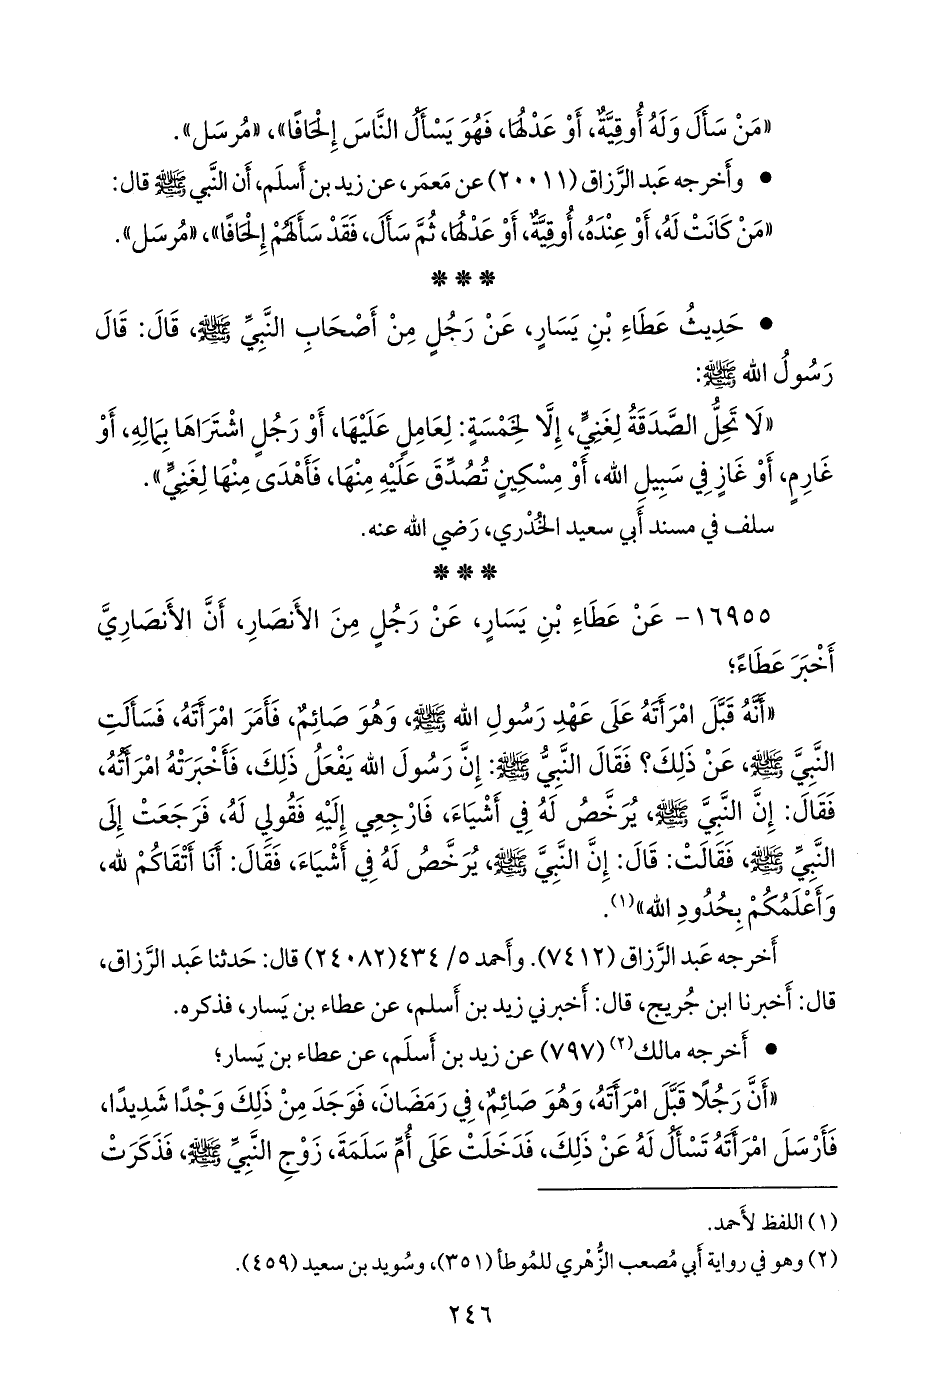 «مَنْ سَأَلَ وَلَهُ أُوقِيَّةٌ، أَوْ عَدْلُهَا، فَهُوَ يَسْأَلُ النَّاسَ إِلْحَافًا»، «مُرسَل».
• وأَخرجه عَبد الرَّزاق (٢٠٠١١) عن مَعمَر، عن زيد بن أَسلَم، أَن النَّبي ﷺ قال:
«مَنْ كَانَتْ لَهُ، أَوْ عِنْدَهُ، أُوقِيَّةٌ، أَوْ عَدْلُهَا، ثُمَّ سَأَلَ، فَقَدْ سَأَلَهُمْ إِلْحَافًا»، «مُرسَل».
* * *
• حَدِيثُ عَطَاءِ بْنِ يَسَارٍ، عَنْ رَجُلٍ مِنْ أَصْحَابِ النَّبِيِّ ﷺ، قَالَ: قَالَ
رَسُولُ الله ﷺ:
«لَا تَحِلُّ الصَّدَقَةُ لِغَنِيٍّ، إِلَّا لِخَمْسَةٍ: لِعَامِلٍ عَلَيْهَا، أَوْ رَجُلٍ اشْتَرَاهَا بِمَالِهِ، أَوْ
غَارِمٍ، أَوْ غَازٍ فِي سَبِيلِ الله، أَوْ مِسْكِينٍ تُصُدِّقَ عَلَيْهِ مِنْهَا، فَأَهْدَى مِنْهَا لِغَنِيٍّ».
سلف في مسند أَبي سعيد الخُدْري، رَضي الله عنه.
* * *
١٦٩٥٥- عَنْ عَطَاءِ بْنِ يَسَارٍ، عَنْ رَجُلٍ مِنَ الأَنصَارِ، أَنَّ الأَنصَارِيَّ
أَخْبَرَ عَطَاءً؛
«أَنَّهُ قَبَّلَ امْرَأَتَهُ عَلَى عَهْدِ رَسُولِ الله ﷺ، وَهُوَ صَائِمٌ، فَأَمَرَ امْرَأَتَهُ، فَسَأَلَتِ
النَّبِيَّ ﷺ، عَنْ ذَلِكَ؟ فَقَالَ النَّبِيُّ ﷺ: إِنَّ رَسُولَ الله يَفْعَلُ ذَلِكَ، فَأَخْبَرَتْهُ امْرَأَتُهُ،
فَقَالَ: إِنَّ النَّبِيَّ ﷺ، يُرَخَّصُ لَهُ فِي أَشْيَاءَ، فَارْجِعِي إِلَيْهِ فَقُولِي لَهُ، فَرَجَعَتْ إِلَى
النَّبِيِّ ﷺ، فَقَالَتْ: قَالَ: إِنَّ النَّبِيَّ ﷺ، يُرَخَّصُ لَهُ فِي أَشْيَاءَ، فَقَالَ: أَنَا أَتْقَاكُمْ لله،
وَأَعْلَمُكُمْ بِحُدُودِ الله»(١).
أَخرجه عَبد الرَّزاق (٧٤١٢). وأَحمد ٥/ ٤٣٤(٢٤٠٨٢) قال: حَدثنا عَبد الرَّزاق،
قال: أَخبرنا ابن جُريج، قال: أَخبرني زيد بن أَسلم، عن عطاء بن يَسار، فذكره.
• أَخرجه مالك(٢) (٧٩٧) عن زيد بن أَسلَم، عن عطاء بن يَسار؛
«أَنَّ رَجُلًا قَبَّلَ امْرَأَتَهُ، وَهُوَ صَائِمٌ، فِي رَمَضَانَ، فَوَجَدَ مِنْ ذَلِكَ وَجْدًا شَدِيدًا،
فَأَرْسَلَ امْرَأَتَهُ تَسْأَلُ لَهُ عَنْ ذَلِكَ، فَدَخَلَتْ عَلَى أُمِّ سَلَمَةَ، زَوْجِ النَّبِيِّ ﷺ، فَذَكَرَتْ
(١) اللفظ لأَحمد.
(٢) وهو في رواية أَبي مُصعب الزُّهْري للمُوطأ (٣٥١)، وسُويد بن سعيد (٤٥٩).
٢٤٦